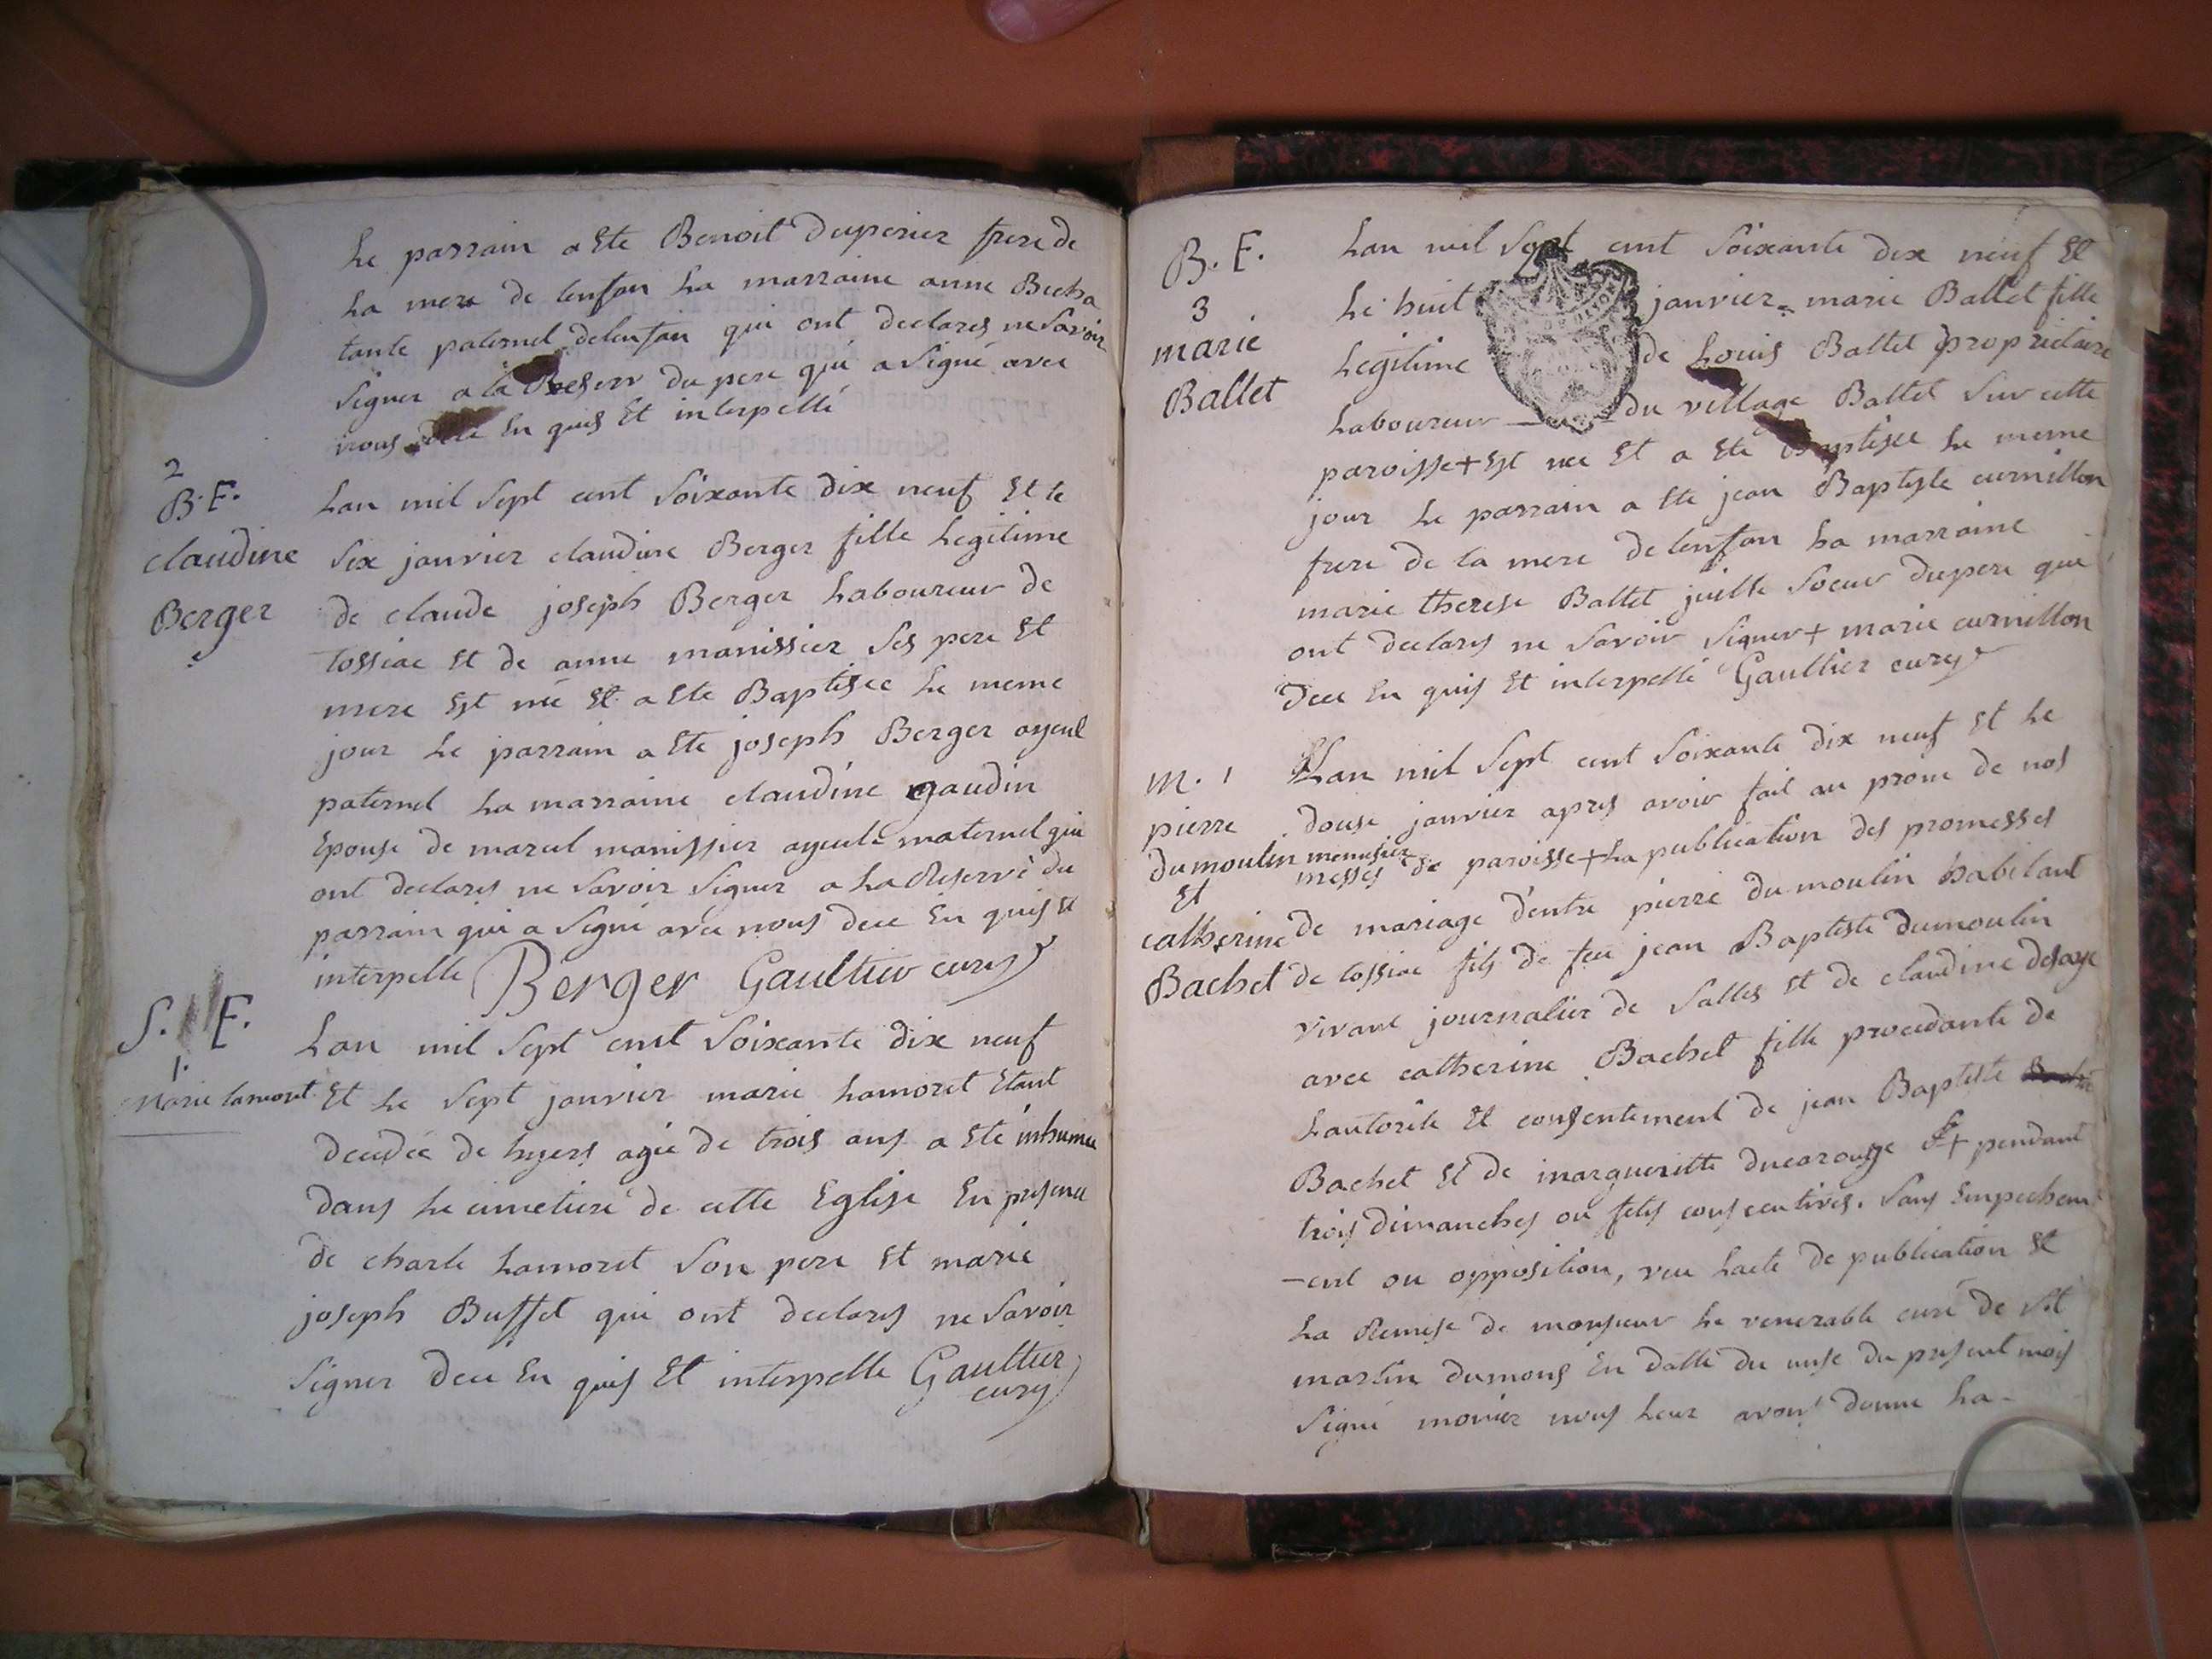 Le parrain a ete Benoit Duperier frere de
La mere de lenfan La marraine anne Bicha
tante paternel delenfan qui ont declares ne savoir
signer a la Reserv du pere qui a signé avec
nous dece En quis Et interpellé
2
B. F.
claudine
Berger
Lan mil sept cent soixante dix neuf Et le
six janvier claudine Berger fille Legitime
de claude joseph Berger Laboureur de
tossiac Et de anne manissier ses pere Et
mere Est née Et a ete Baptisee Le meme
jour Le parrain a ete joseph Berger ayeul
paternel La marraine claudine gaudin
Epouse de marcel manissier ayeule maternel qui
ont declares ne savoir signer a La Reserve du
parrain qui a signé avec nous dece En quis Et
interpelle Berger Gaultier curé
S. F.
1.
Marie lamoret
Lan mil sept cent soixante dix neuf
Et Le sept janvier marie Lamoret Etant
decedée de hyers agée de trois ans a eté inhumee
dans Le cimetiere de cette Eglise En presence
de charle Lamoret son pere Et marie
joseph Buffet qui ont declares ne savoir
signer dece En quis Et interpelle Gaultier
cury
B. F.
3
marie
Ballet
Lan mil sept cent soixante dix neuf Et
Le huit janvier marie Ballet fille
Legitime de Louis Ballet propriétaire
Laboureur du village Ballet sur cette
paroisse + Est nee Et a ete Baptisee Le meme
jour Le parrain a ete jean Baptiste curnillon
frere de la mere de lenfan La marraine
marie therese Ballet fuille soeur du pere qui
ont declares ne savoir signer + marie curnillon
dece En quis Et interpellé Gaultier cury
M. 1
pierre
dumoulin
Et
catherine
Bachet
Lan mil sept cent soixante dix neuf Et Le
douse janvier apres avoir fait au prone de nos
menusier
messes de paroisse + La publication des promesses
de mariage d'entre pierre dumoulin habitant
de tossiac fils de feu jean Baptiste dumoulin
vivant journalier de salles Et de claudine desaye
avec catherine Bachet fille procedante de
Lautorite Et consentement de jean Baptiste
Bachet Et de margueritte ducarouge + pendant
trois dimanches ou fetes consecutives. sans Empechem
-ent ou opposition, veu Lacte de publication Et
La Remise de monsieur Le venerable curé de St
martin dumons En datte du unse du present mois
signé monier nous Leur avons donne La-